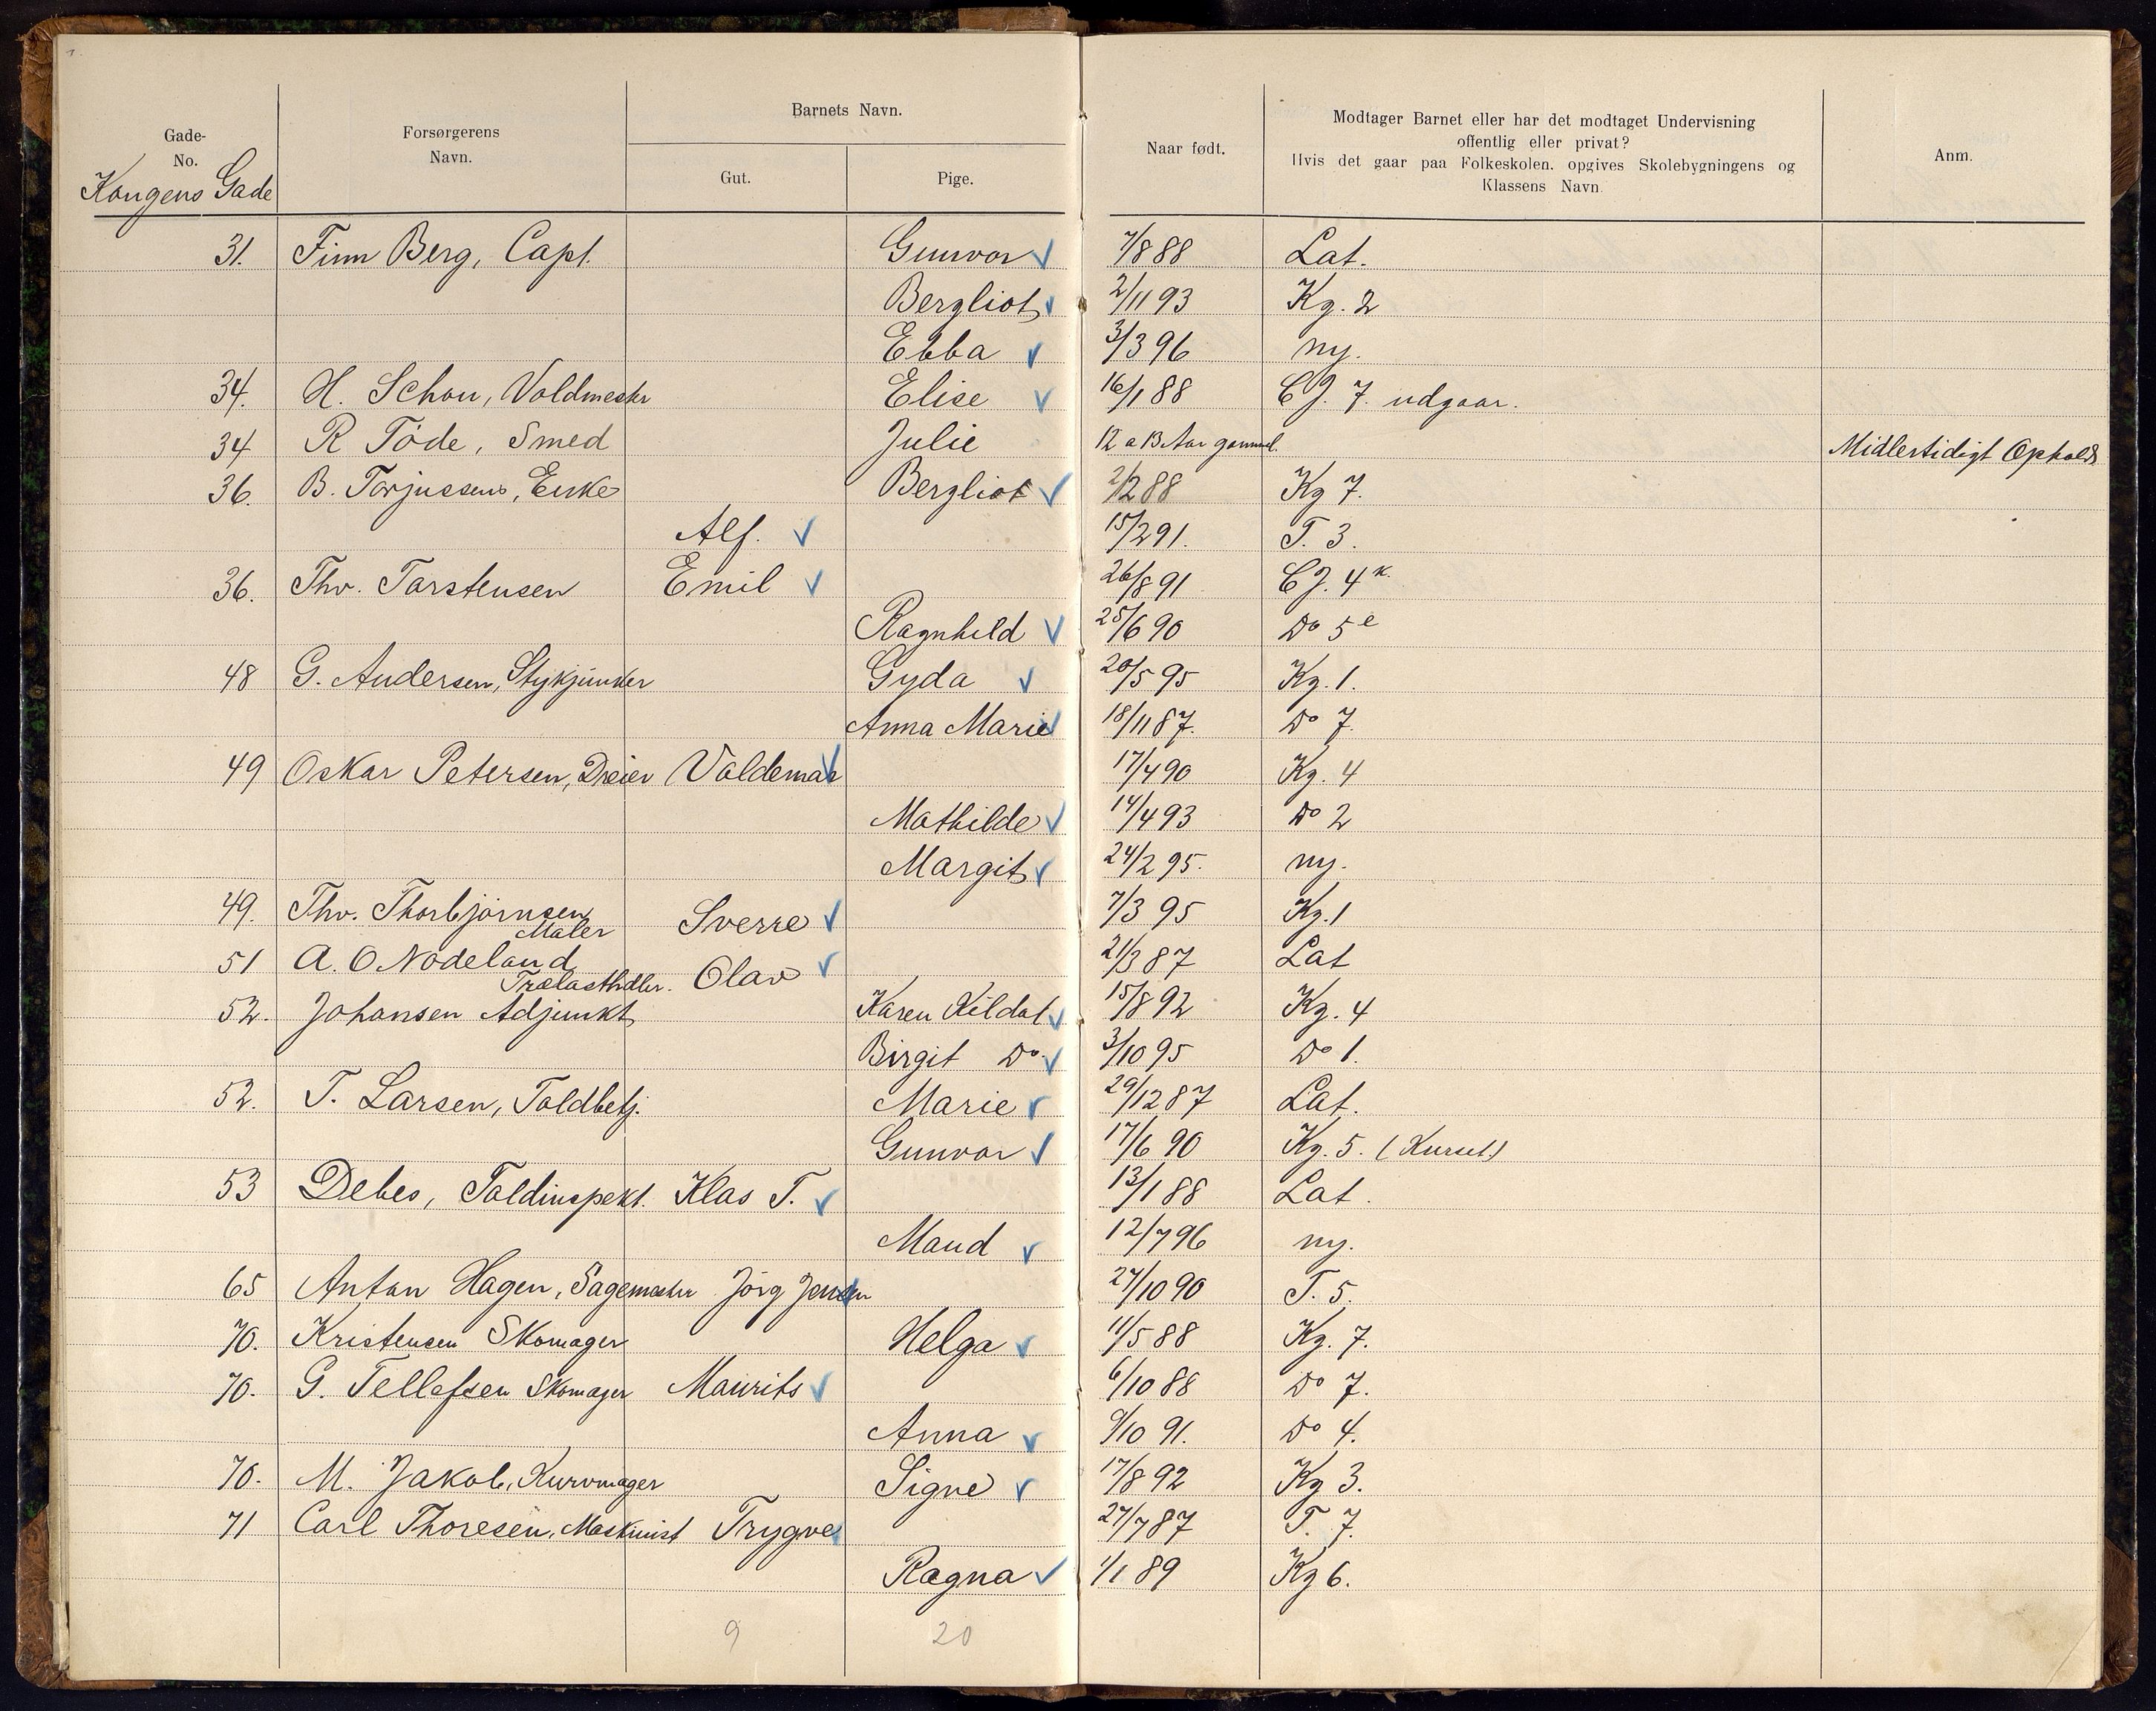 Gade-
No.
Kongens Gade
Forsørgerens
Navn.
Barnets Navn.
Gut.
Pige.
Naar født.
Modtager Barnet eller har det modtaget Undervisning
offentlig eller privat?
Hvis det gaar paa Folkeskolen, opgives Skolebygningens og
Klassens Navn.
Anm.
31. Finn Berg, Capt. Gunvor 7/8 88 Lat.
Bergliot 2/11 93 Kg. 2
Ebba 3/3 96 ny.
34. H. Schou, Voldmestr Elise 16/1 88 CJ. 7. udgaar.
34 R Töde, Smed Julie 12 a 13 Aar gammel. Midlertidigt Ophold
36. B. Torjussens, Enke Bergliot 2/2 88 Kg 7.
Alf. 15/2 91. T. 3.
36. Thv. Torstensen Emil 26/8 91 CJ. 4k.
Ragnhild 25/6 90 Do 5e
48 G. Andersen, Stykjunker Gyda 20/5 95 Kg. 1.
Anna Marie 18/11 87. Do 7.
49 Oskar Petersen, Dreier Valdemar 17/4 90 Kg. 4
Mathilde 14/4 93 Do 2
Margit 24/2 95. ny.
49. Thv. Thorbjørnsen Sverre 7/3 95 Kg. 1
Maler
51 A. O Nodeland Olav 21/3 87 Lat
Trælasthdlr.
52. Johansen Adjunkt Karen Kildal 15/8 92 Kg. 4
Birgit Do 3/10 95 Do 1.
52. T. Larsen, Toldbetj. Marie 29/12 87 Lat.
Gunvor 17/6 90 Kg. 5. (Kurset)
53 Debes, Toldinspekt. Klas T. 13/1 88 Lat.
Maud 12/7 96 ny.
65 Anton Hagen, Sagemester Jörg Jensen 27/10 90 T. 5.
70. Kristensen Skomager Helga 11/5 88 Kg. 7.
70. G. Tellefsen Skomager Maurits 6/10 88 Do 7.
Anna 9/10 91. Do 4.
70. M. Jakob, Kurvmager Signe 17/8 92 Kg 3.
71 Carl Thoresen, Maskinist Trygve 27/7 87 T. 7.
Ragna 1/1 89 Kg 6.
9 20